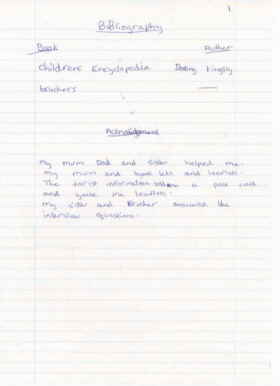 1
Bibliography
Book Author
Childrens Encyclopedia Dorling Kingsly
brochers
Acknowledgement
My mum Dad and sister helped me.
my mum and typed lets and leaflets.
The torist information a post card
and gave me leaflets.
My sister and Brother answered the
interview questions.